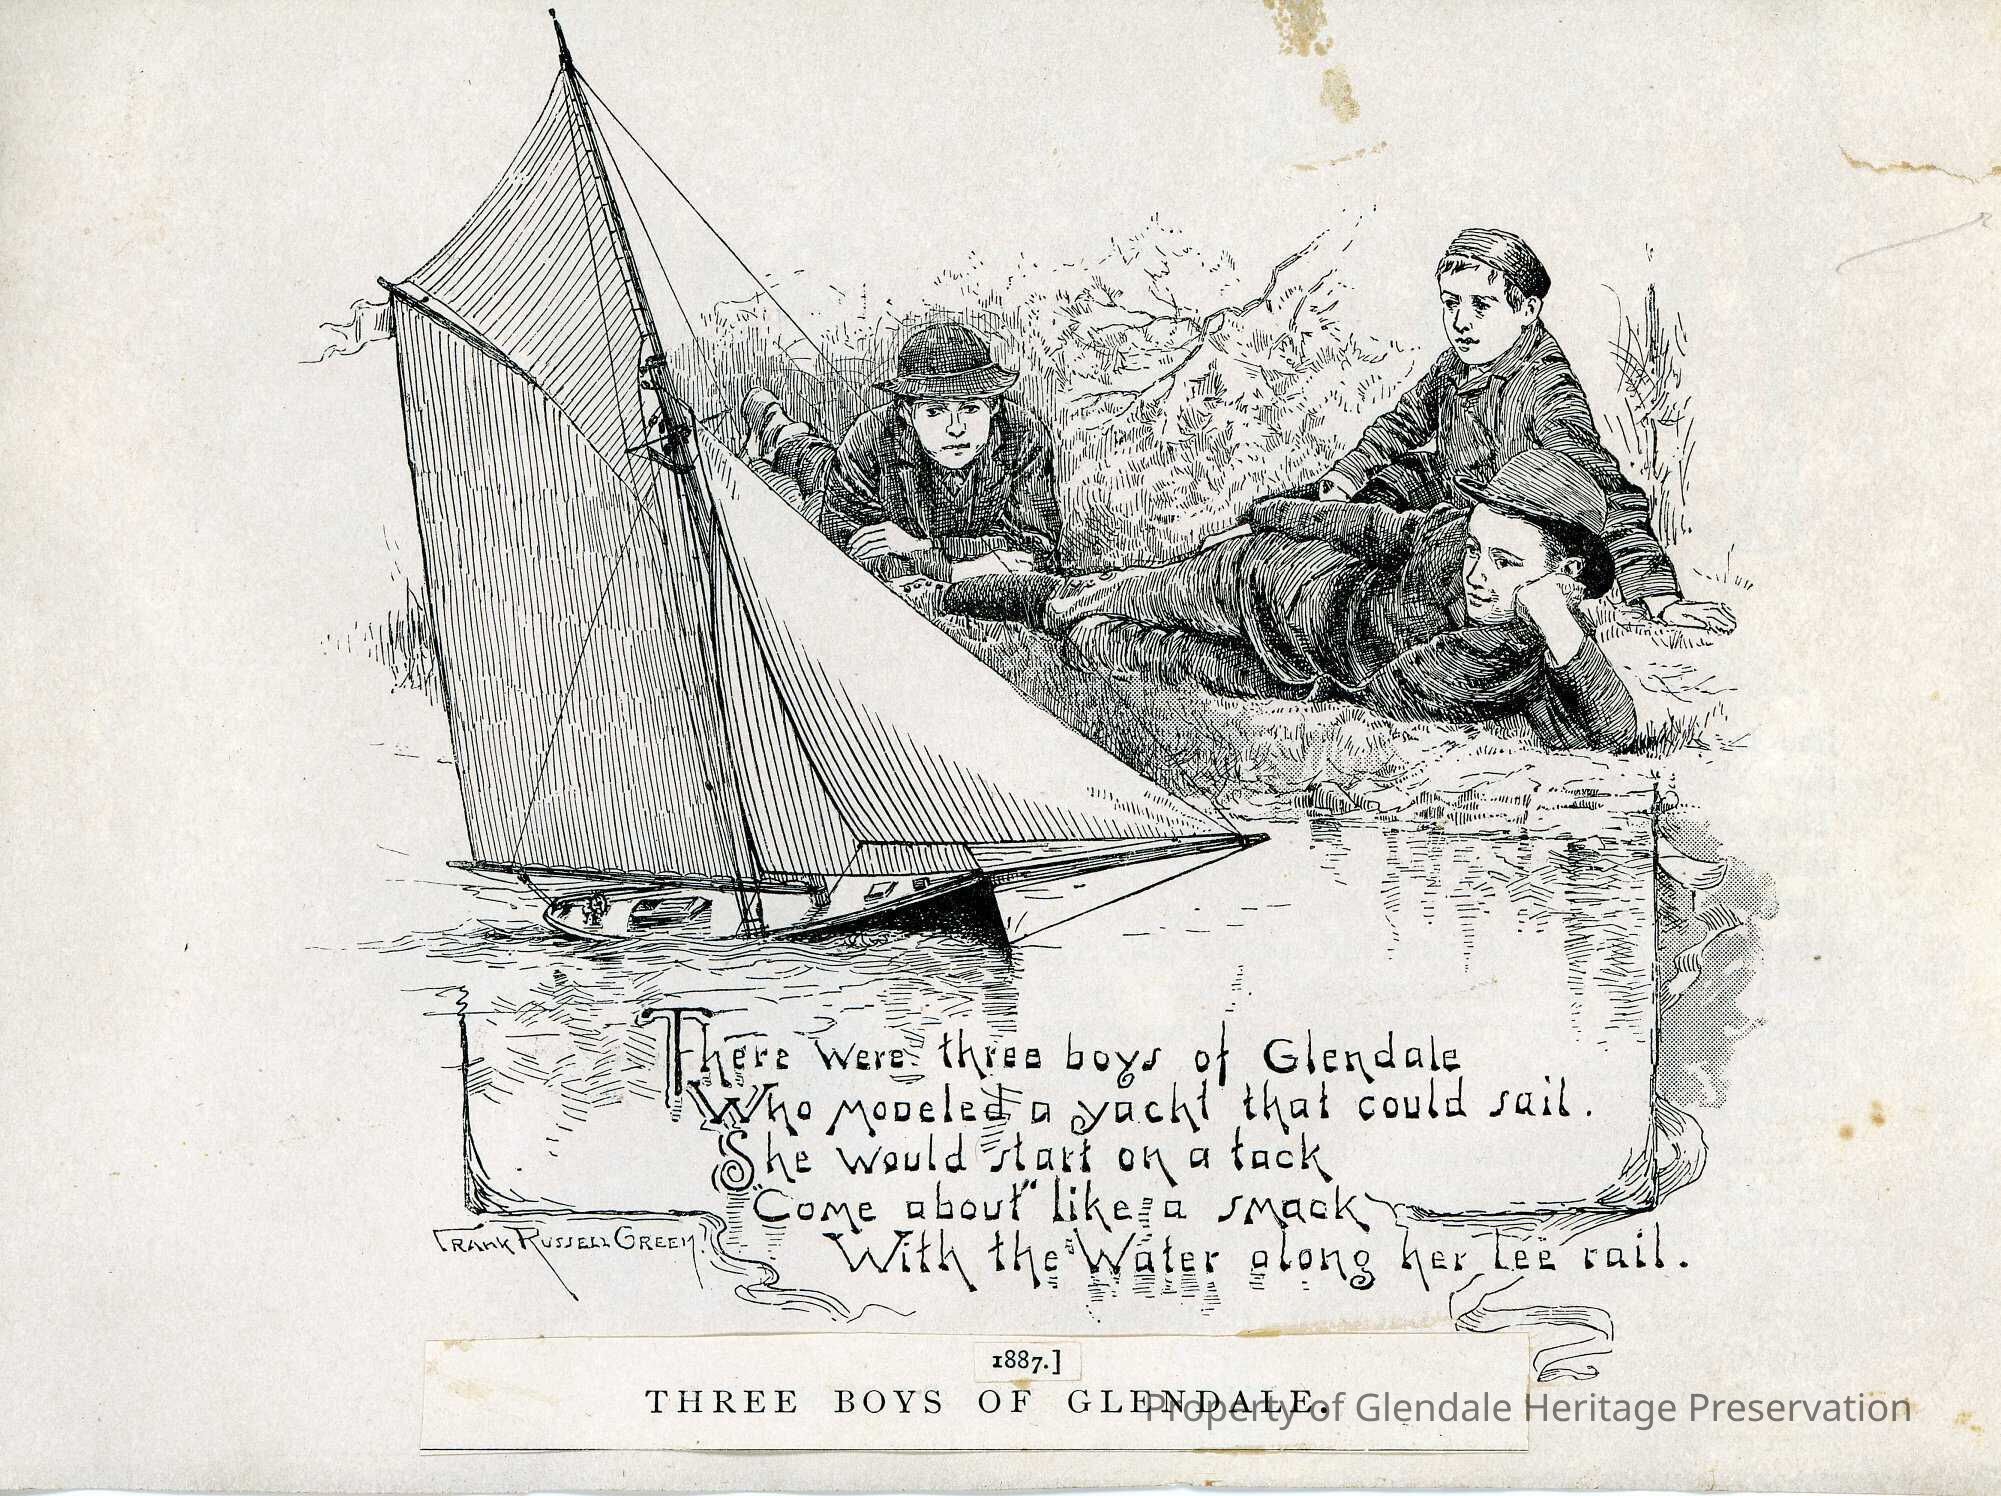 There were three boys of Glendale
Who modeled a yacht that could sail.
She would start on a tack
"Come about" like a smack
With the Water along her lee rail.
Frank Russell Green
1887.]
THREE BOYS OF GLENDALE.
Property of Glendale Heritage Preservation